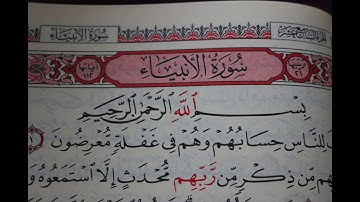 سُورَةُ الأَنْبِيَاء
سُورَةُ الأَنبِيَاء
بِسْمِ ٱللَّهِ ٱلرَّحْمَٰنِ ٱلرَّحِيمِ
لِلنَّاسِ حِسَابُهُمْ وَهُمْ فِى غَفْلَةٍ مُّعْرِضُونَ
مِّن ذِكْرٍ مِّن رَّبِّهِم مُّحْدَثٍ إِلَّا ٱسْتَمَعُوهُ